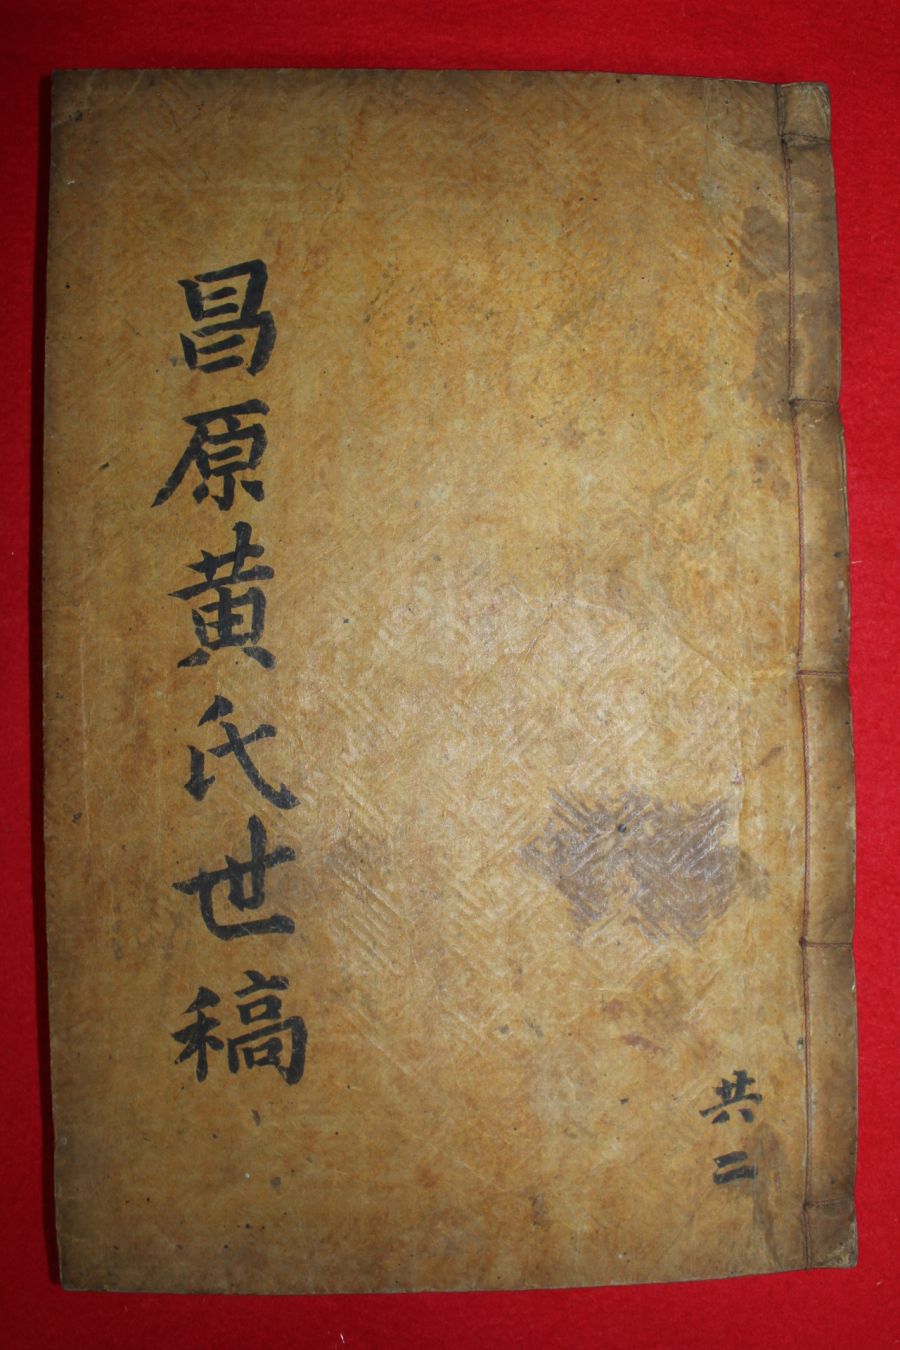 共二
昌原黄氏世稿